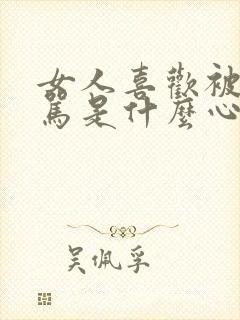 女人喜歡被
罵是什麼心
吳佩孚